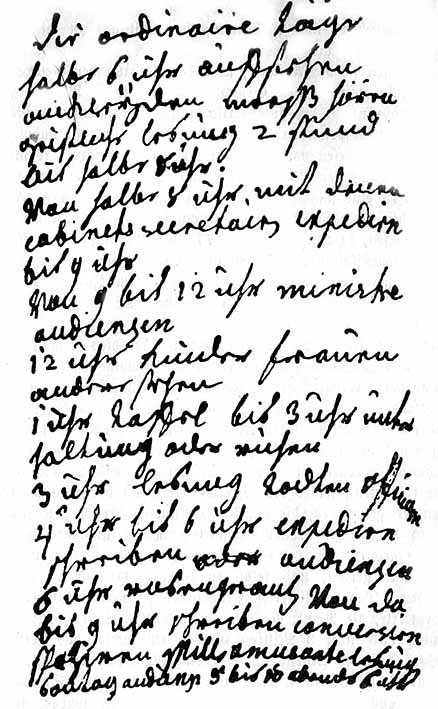 die ordinaire täge
halbe 6 uhr aufstehen
ankleyden mess hören
geistliche lesung 2 stund
bis halbe 8 uhr.
Von halbe 8 uhr mit denen
cabinets secretairs expedirn
bis 9 uhr
Von 9 bis 12 uhr ministre
audienzen
12 uhr kinder frauen
andere sehen
1 uhr taffel bis 3 uhr unter
haltung oder ruhen
3 uhr lesung todten officium
4 uhr bis 6 uhr expedirn
schreiben oder audienzen
6 uhr rosengrantz Von da
bis 9 uhr schreiben conversion
spatziren spille lesung
bis abends 6 uhr